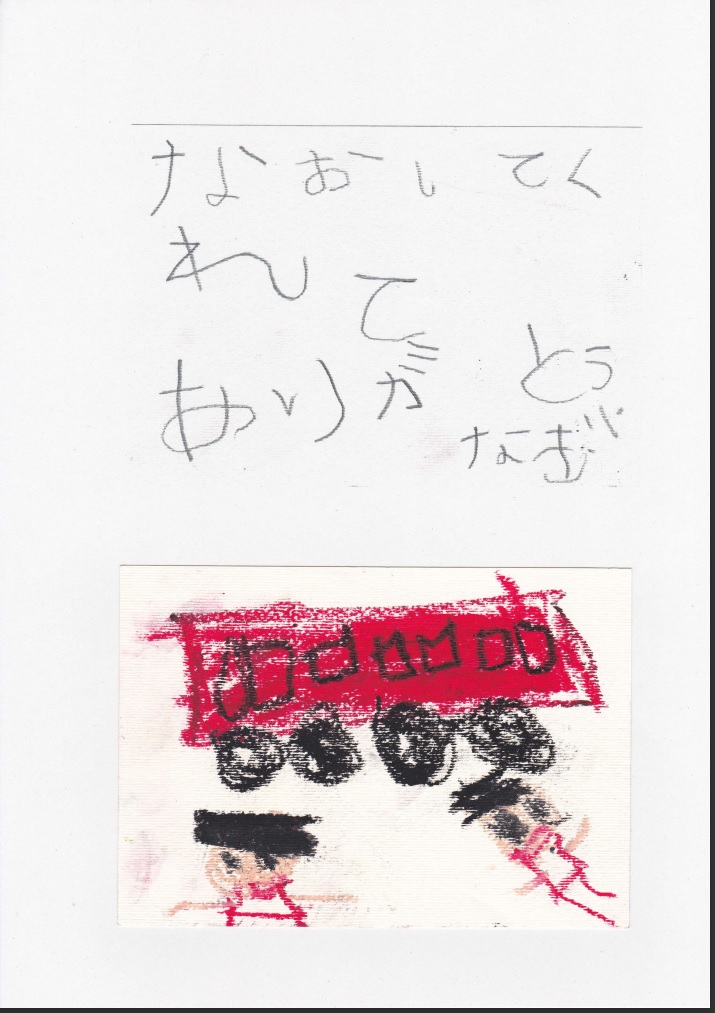 なおしてく
れて
ありがとう
なぎ